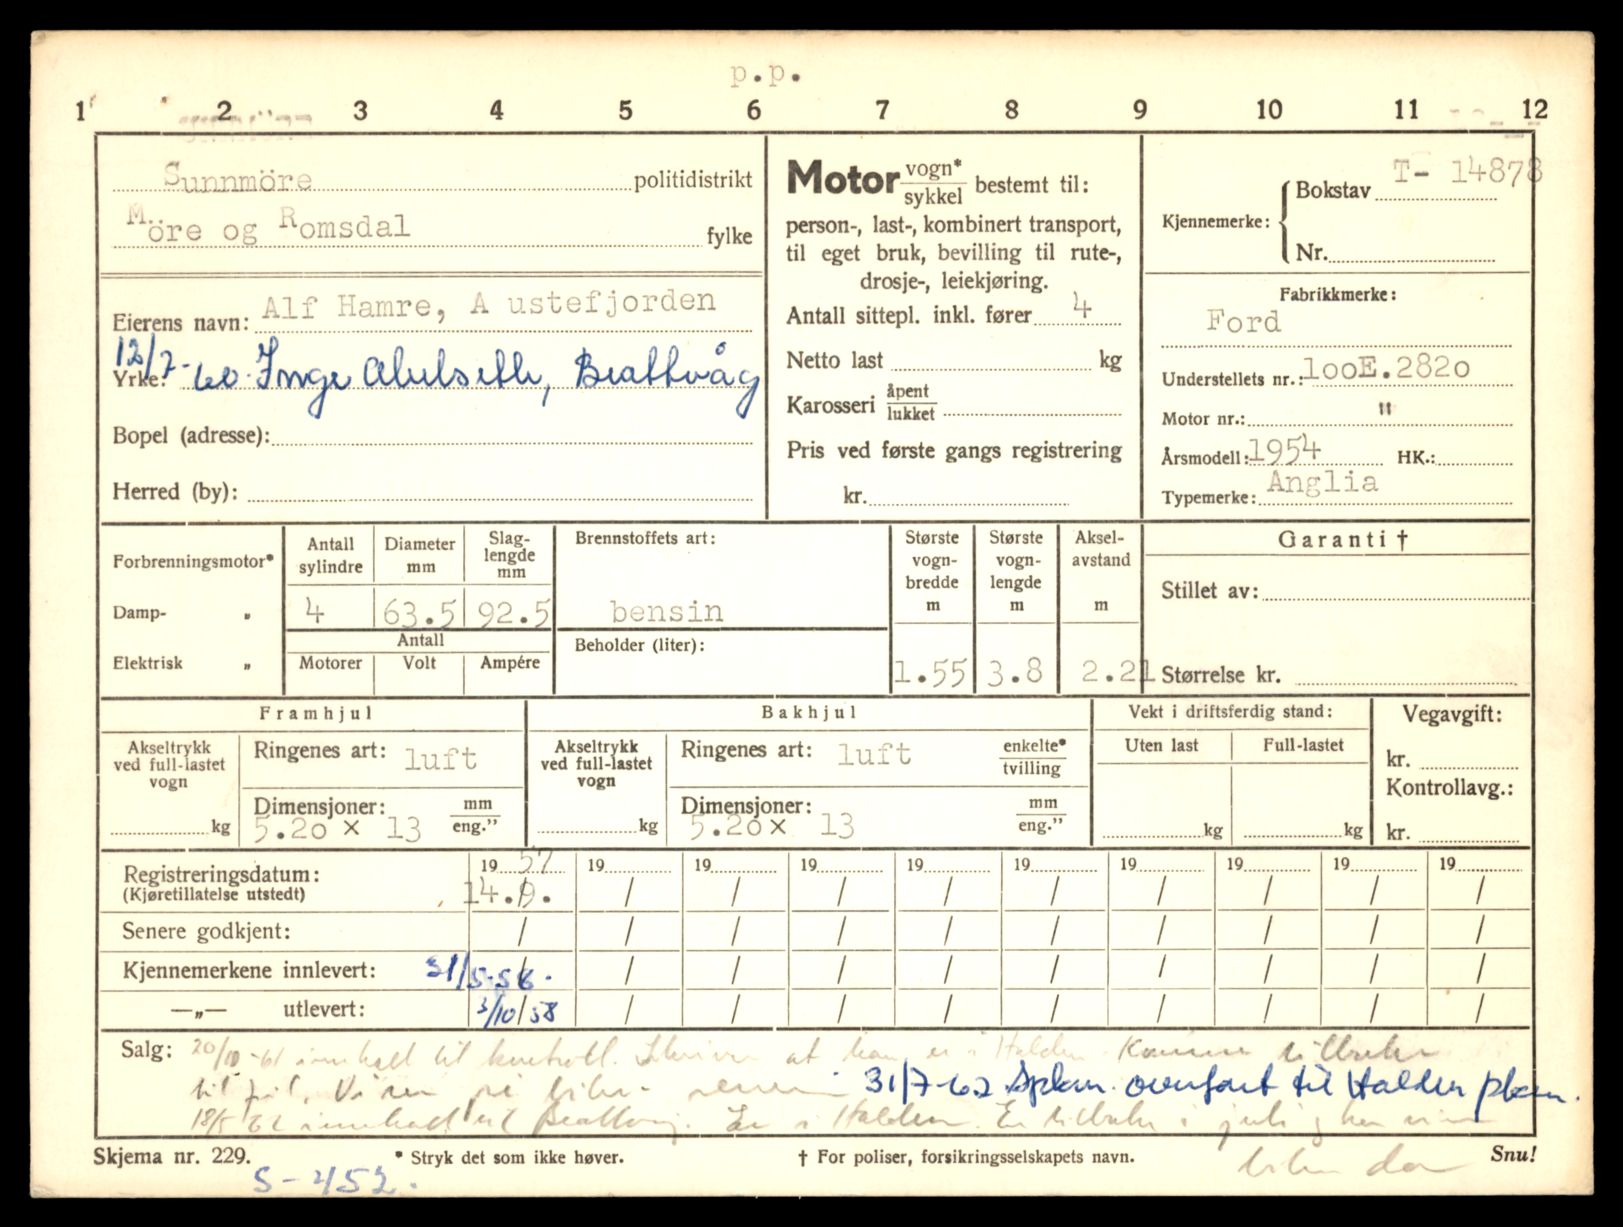 p.p.
1 2 3 4 5 6 7 8 9 10 11 12
Sunnmöre politidistrikt
Möre og Romsdal fylke
Eierens navn: Alf Hamre, A ustefjorden
12/7-60. Inge Alvestth, Brattvåg
Yrke:
Bopel (adresse):
Herred (by):
Motor vogn* sykkel bestemt til:
person-, last-, kombinert transport,
til eget bruk, bevilling til rute-,
drosje-, leiekjøring.
Antall sittepl. inkl. fører 4
Netto last kg
Karosseri åpent lukket
Pris ved første gangs registrering
kr.
Kjennemerke: Bokstav T- 14878
Nr.
Fabrikkmerke:
Ford
Understellets nr.: 100E.2820
Motor nr.: "
Årsmodell: 1954 HK.:
Typemerke: Anglia
Forbrenningsmotor*
Damp- „
Elektrisk „
Antall sylindre Diameter mm Slag- lengde mm
4 63.5 92.5
Antall
Motorer Volt Ampére
Brennstoffets art:
bensin
Beholder (liter):
Største vogn- bredde m Største vogn- lengde m Aksel- avstand m
1.55 3.8 2.21
Garanti †
Stillet av:
Størrelse kr.
Framhjul
Akseltrykk ved full-lastet vogn
kg
Ringenes art: luft
Dimensjoner: mm eng."
5.20 x 13
Bakhjul
Akseltrykk ved full-lastet vogn
kg
Ringenes art: luft enkelte* tvilling
Dimensjoner: mm eng."
5.20x 13
Vekt i driftsferdig stand:
Uten last Full-lastet
kg kg
Vegavgift:
kr.
Kontrollavg.:
kr.
19 57 19 19 19 19 19 19 19 19 19
Registreringsdatum: 14./9. / / / / / / / / /
(Kjøretillatelse utstedt)
Senere godkjent: / / / / / / / / / /
Kjennemerkene innlevert: 31/5-58. / / / / / / / / /
—„— utlevert: 3/10/58 / / / / / / / / /
Salg: 20/10-61 innkalt til kontroll. Skriver at han er i Halden. Kommer tilbake
til jul. Vi ser på bilen senere 31/7-62 Spkm. overført til Halden pkm.
18/5 62 innkalt til Brattvåg. Er i Halden. Er tilbake i juli
bilen da
Skjema nr. 229. * Stryk det som ikke høver. † For poliser, forsikringsselskapets navn. Snu!
S-452.